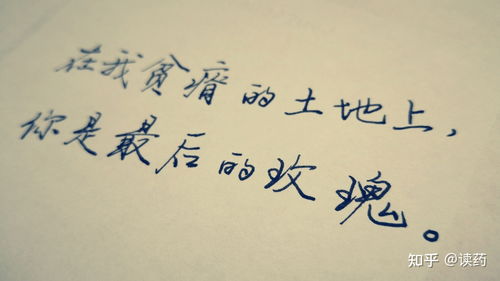 在我贫瘠的土地上，
你是最后的玫瑰。
知乎 @读药